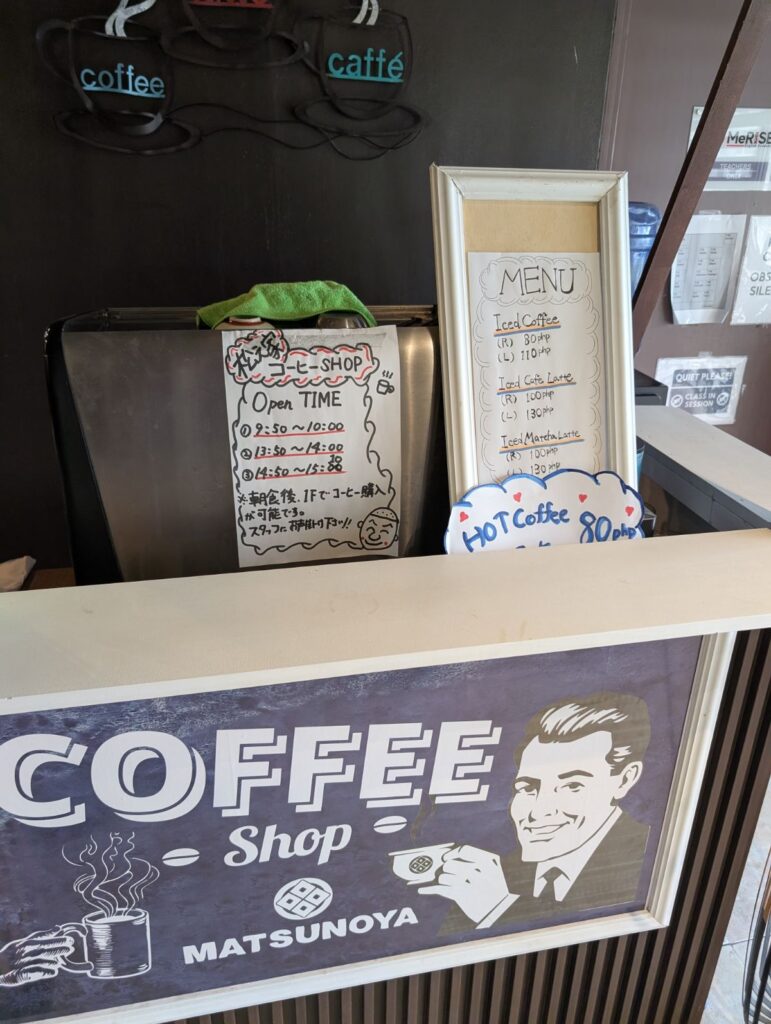 coffee
caffé
MeRISE
TEACHERS
ONLY
QUIET PLEASE!
CLASS IN
SESSION
松之家
コーヒーSHOP
Open TIME
① 9:50~10:00
② 13:50~14:00
③ 14:50~15:
※朝食後、1Fでコーヒー購入
が可能です。
スタッフにお声掛け下さい!!
MENU
Iced Coffee
(R) 80php
(L) 110php
Iced Cafe Latte
(R) 100php
(L) 130php
Iced Matcha Latte
(R) 100php
(L) 130php
HOT Coffee 80php
COFFEE
Shop
MATSUNOYA